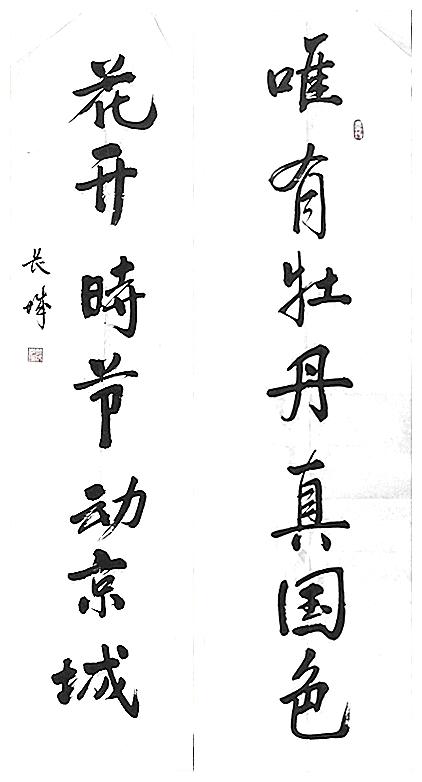 唯有牡丹真国色
花开時节动京城
长城